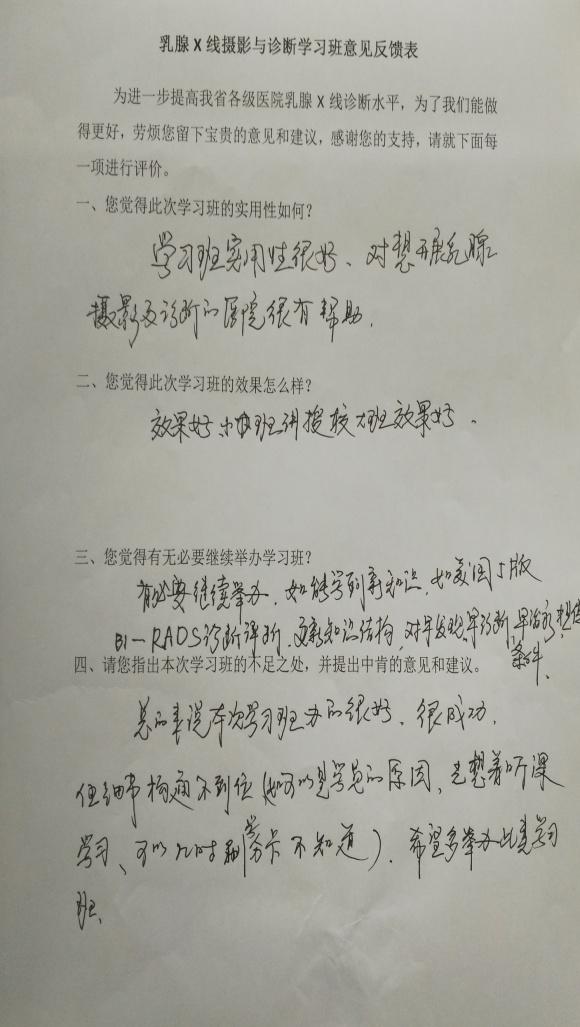 乳腺 X 线摄影与诊断学习班意见反馈表
为进一步提高我省各级医院乳腺 X 线诊断水平，为了我们能做
得更好，劳烦您留下宝贵的意见和建议，感谢您的支持，请就下面每
一项进行评价。
一、您觉得此次学习班的实用性如何？
学习班实用性很好、对想开展乳腺
摄影及诊断的医院很有帮助.
二、您觉得此次学习班的效果怎么样？
效果好 小班讲授较大班效果好.
三、您觉得有无必要继续举办学习班？
有必要继续举办. 如能学到新知识. 如美国5版
BI-RADS诊断评断. 更新知识结构, 对早发现早诊断 早治疗提供
条件.
四、请您指出本次学习班的不足之处，并提出中肯的意见和建议。
总的来说本次学习班办的很好. 很成功.
但细节 沟通不到位 (可以是学员的原因、光想着听课
学习、可以几时刷学分卡不知道). 希望多举办此类学习
班.